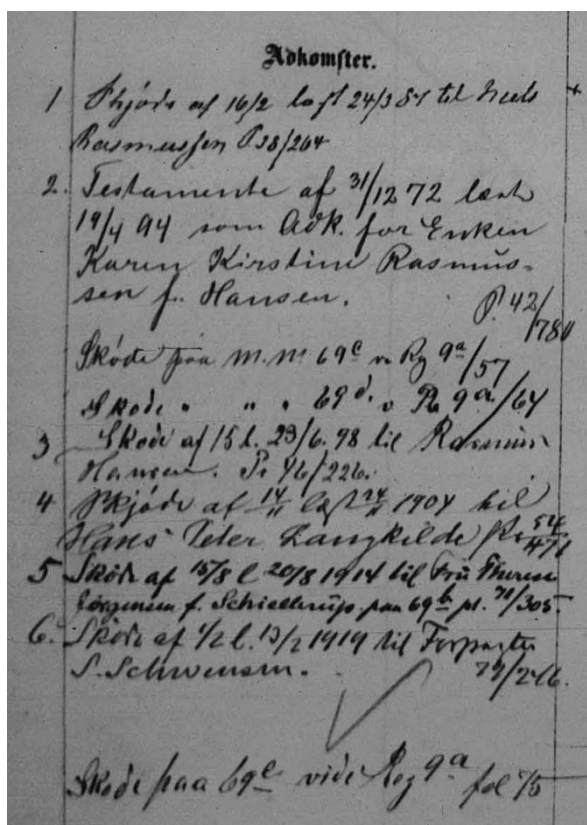 Adkomster.
1 Skjøde af 16/2 læst 24/3 87 til Niels
Rasmussen P 38/264
2. Testamente af 31/12 72 læst
19/4 94 som Adk. for Enken
Karen Kirstine Rasmus-
sen f. Hansen. P. 42/780
Skøde paa M. Nr 69c v. Rg 9a/57
Skøde " " " 69d. v R 9a./64
3 Skøde af 15 l. 23/6. 98 til Rasmus
Hansen. Pr 46/226.
4 Skjøde af 14/11 læst 24/11 1904 til
Hans Peter Langkilde Pr 54/471
5 Skøde af 15/8 l 20/8 1914 til Fru Therese
Jørgensen f. Schiellerup. paa 69b pr. 71/305
6. Skøde af 1/2 l. 13/2 1919 til Forpagter
S. Schwensen. 79/246.
Skøde paa 69e vide Reg 9a fol 75